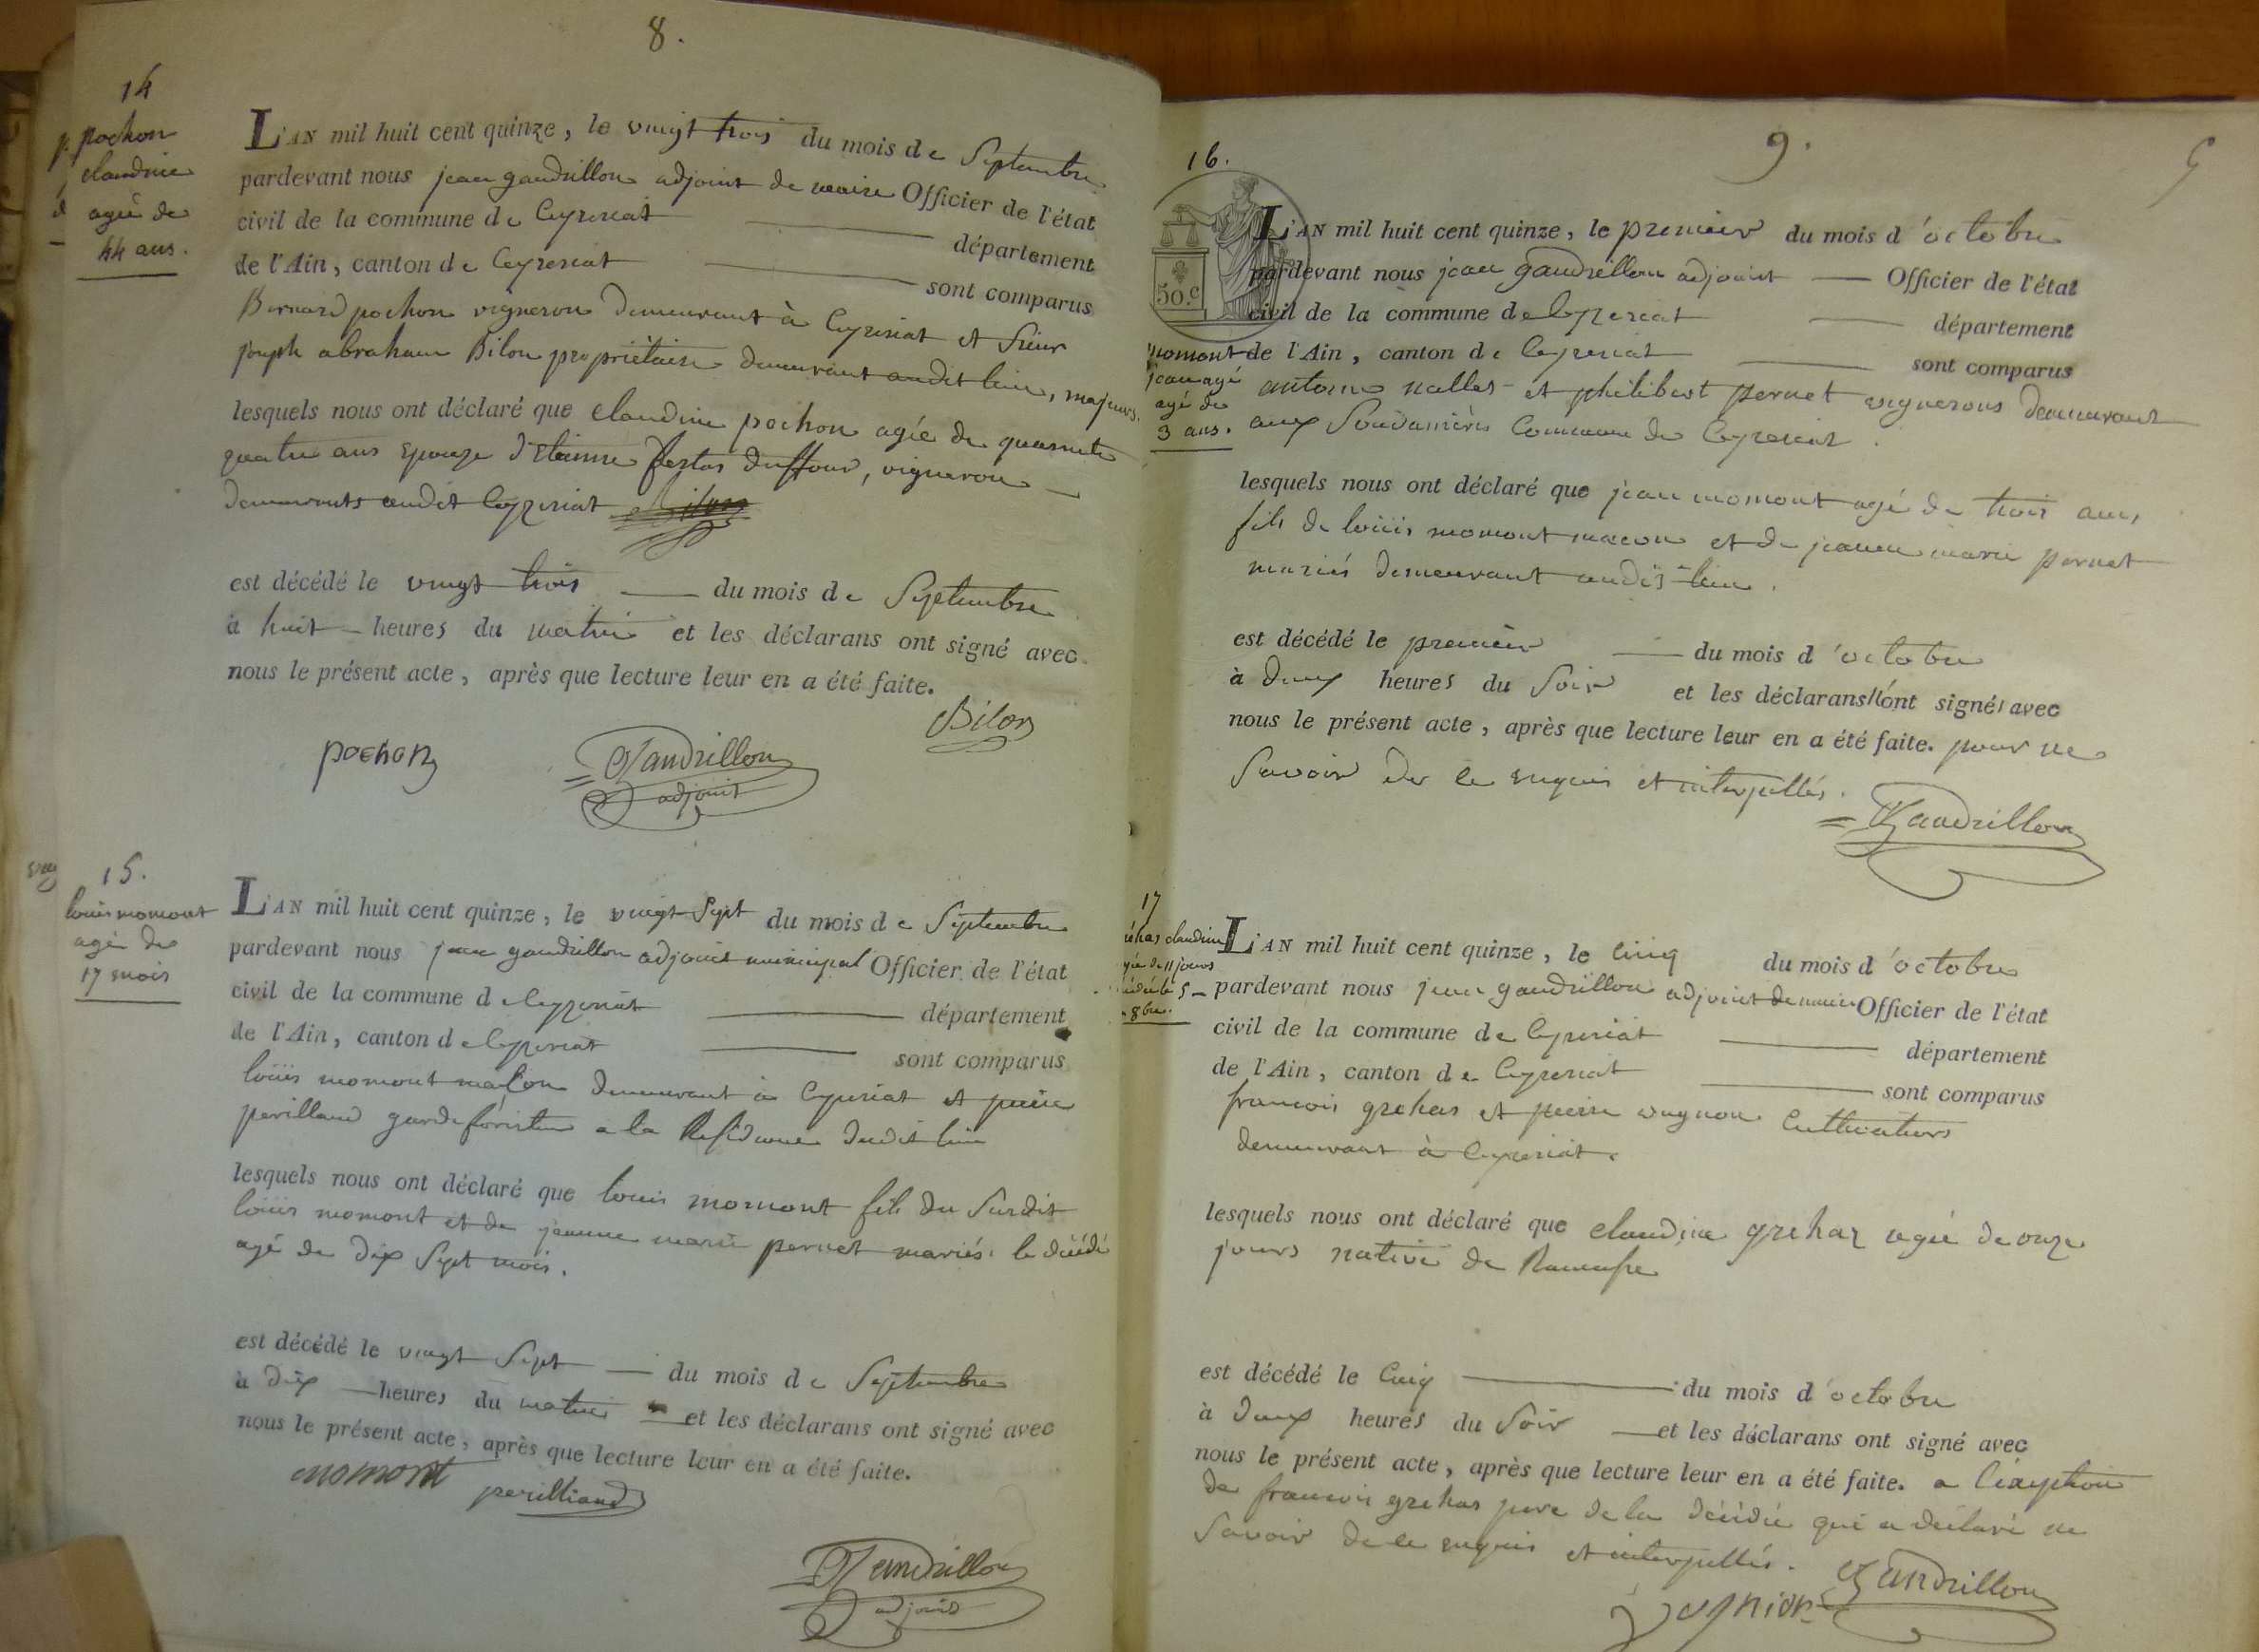 8.
14
pochon
claudine
agée de
44 ans.
L'AN mil huit cent quinze, le vingt trois du mois de Septembre
pardevant nous jean gaudrillon adjoint de maire Officier de l'état
civil de la commune de Ceyzeriat département
de l'Ain, canton de Ceyzeriat sont comparus
Bernard pochon vigneron demeurant à Ceyzeriat et Sieur
joseph abraham Bilon propriétaire demeurant audit lieu, majeurs.
lesquels nous ont déclaré que claudine pochon agée de quarante
quatre ans epouze d'Etienne festas duffour, vigneron
demeurants audit Ceyzeriat
est décédé le vingt trois du mois de Septembre
à huit heures du matin et les déclarans ont signé avec
nous le présent acte, après que lecture leur en a été faite.
Bilon
pochon
Gaudrillon
adjoint
15.
louis momont
agé de
17 mois
L'AN mil huit cent quinze, le vingt Sept du mois de Septembre
pardevant nous jean gaudrillon adjoint municipal Officier de l'état
civil de la commune de Ceyzeriat département
de l'Ain, canton de Ceyzeriat sont comparus
loüis momont maçon demeurant à Ceyzeriat et pierre
perilland garde forestier a la Residence dudit lieu
lesquels nous ont déclaré que louis momont fils du Susdit
loüis momont et de jeanne marie pernet mariés. le décédé
agé de dix Sept mois.
est décédé le vingt Sept du mois de Septembre
à dix heures du matin et les déclarans ont signé avec
nous le présent acte, après que lecture leur en a été faite.
momont
perilliand
Gaudrillon
adjoint
9.
9
16.
50.c
momont
jean agé
agé de
3 ans.
L'AN mil huit cent quinze, le premier du mois d'octobre
pardevant nous jean gaudrillon adjoint Officier de l'état
civil de la commune de Ceyzeriat département
de l'Ain, canton de Ceyzeriat sont comparus
antoine nallet et philibert pernet vignerons demeurant
aux Soudanières Commune de Ceyzeriat.
lesquels nous ont déclaré que jean momont agé de trois ans,
fils de loüis momont macon et de jeanne marie pernet
mariés demeurant audit lieu.
est décédé le premier du mois d'octobre
à deux heures du Soir et les déclarans n'ont signé avec
nous le présent acte, après que lecture leur en a été faite. pour ne
Savoir de ce enquis et interpellés.
Gaudrillon
17
claudine
11 jours
5
8bre.
L'AN mil huit cent quinze, le Cinq du mois d'octobre
pardevant nous jean gaudrillon adjoint de maire Officier de l'état
civil de la commune de Ceyzeriat département
de l'Ain, canton de Ceyzeriat sont comparus
francois grehas et pierre vugnon Cultivateurs
demeurant à Ceyzeriat.
lesquels nous ont déclaré que claudine grehaz agée de onze
jours native de Ramasse
est décédé le Cinq du mois d'octobre
à deux heures du Soir et les déclarans ont signé avec
nous le présent acte, après que lecture leur en a été faite. a l'exception
de francois grehas pere de la décédée qui a déclaré ne
Savoir de ce enquis et interpellés.
Gaudrillon